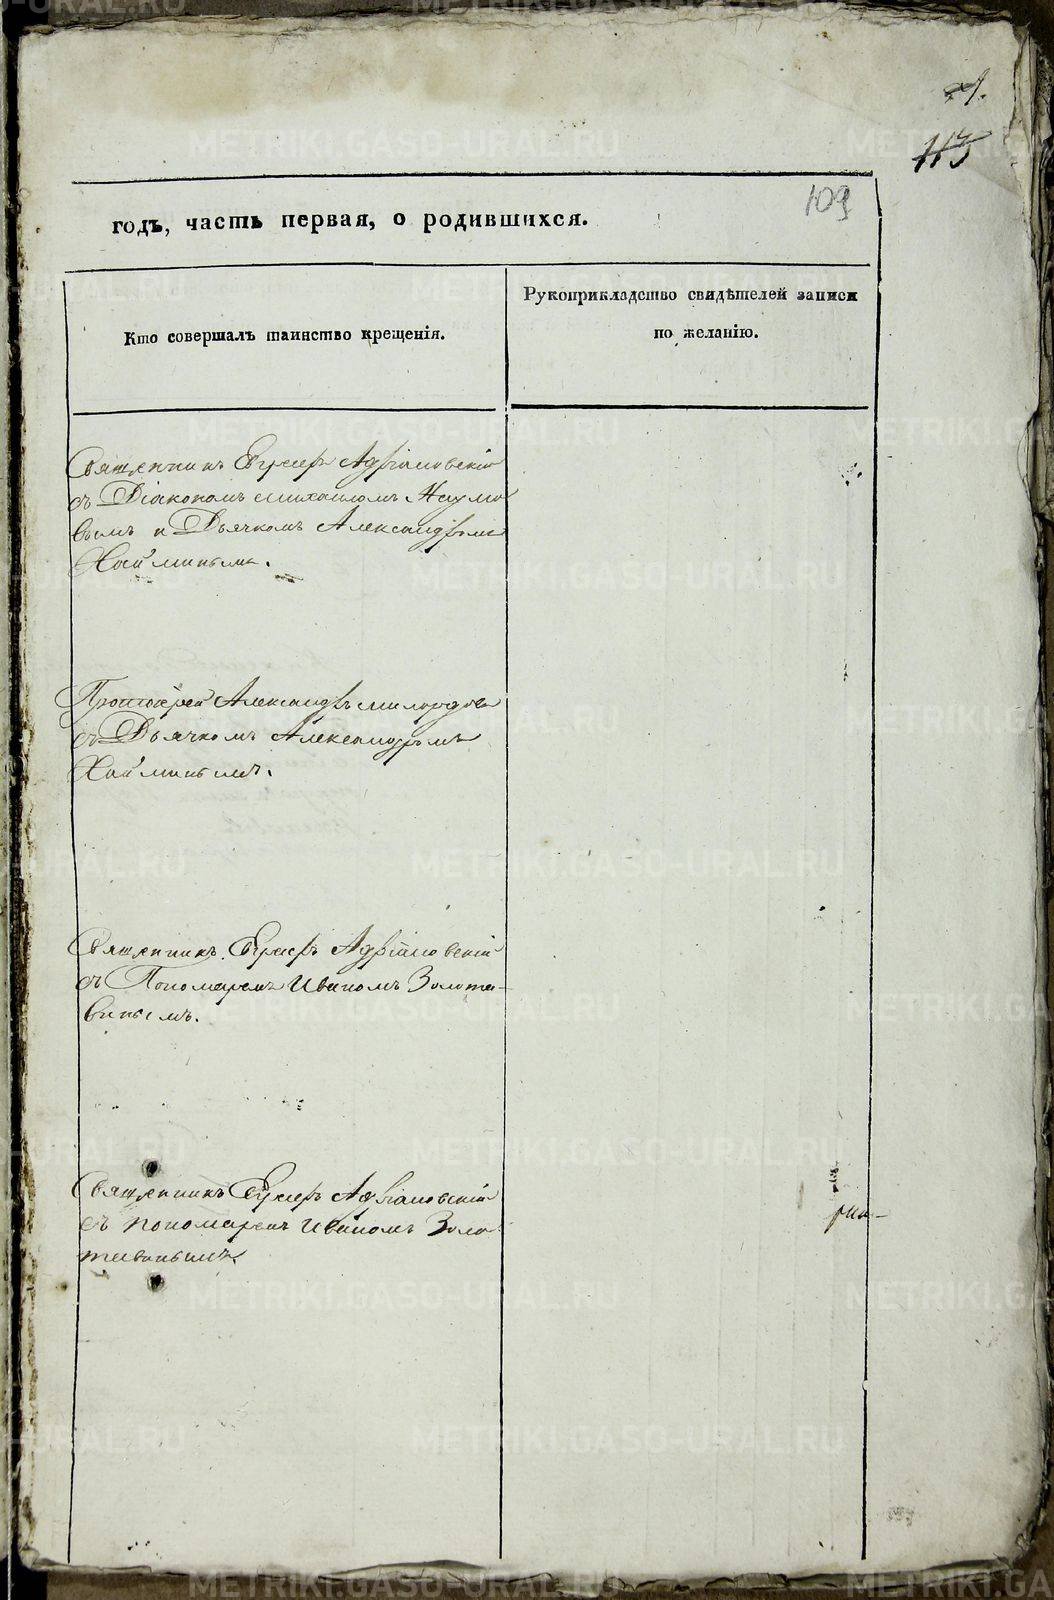 113
109
годъ, часть первая, о родившихся.
Кто совершалъ таинство крещенія.
Рукоприкладство свидѣтелей записи
по желанію.
Священникъ Адріановскій
съ Діакономъ Михаиломъ Наумо
вымъ и Дьячкомъ Александромъ
Хайминымъ.
Протоіерей Александръ Милордовъ
съ Дьячкомъ Александромъ
Хайминымъ.
Священникъ Адріановскій
съ Пономаремъ Иваномъ Золота-
винымъ.
Священникъ Адріановскій
съ пономаремъ Иваномъ Золо
тавинымъ.
METRIKI.GASO-URAL.RU